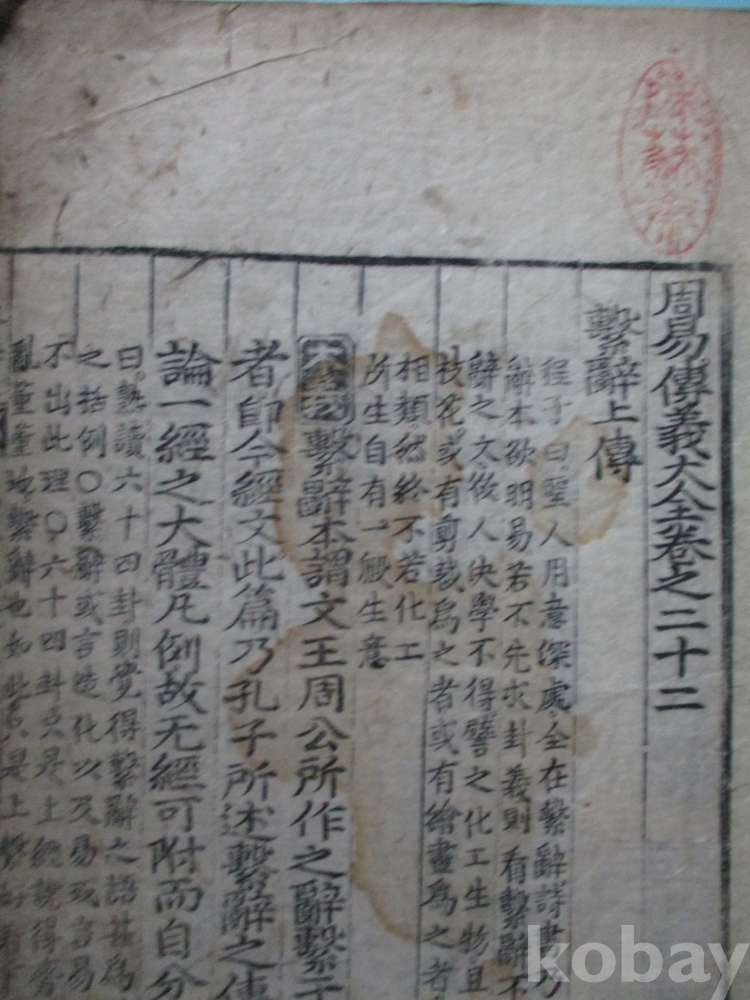 周易傳義大全卷之二十二
繫辭上傳
程子曰聖人用意深處全在繫辭詩書乃
辭本欲明易若不先求卦義則看繫辭不
辭之文後人決學不得譬之化工生物且
枝花或有剪裁爲之者或有繪畫爲之者
相類然終不若化工
所生自有一般生意
繫辭本謂文王周公所作之辭繫于
者即今經文此篇乃孔子所述繫辭之傳
論一經之大體凡例故无經可附而自分
曰熟讀六十四卦則覺得繫辭之語甚爲
之括例○繫辭或言造化以及易或言易
不出此理○六十四卦只是上經說得齊
亂董董地繫辭也如此只是上繫好看
kobay